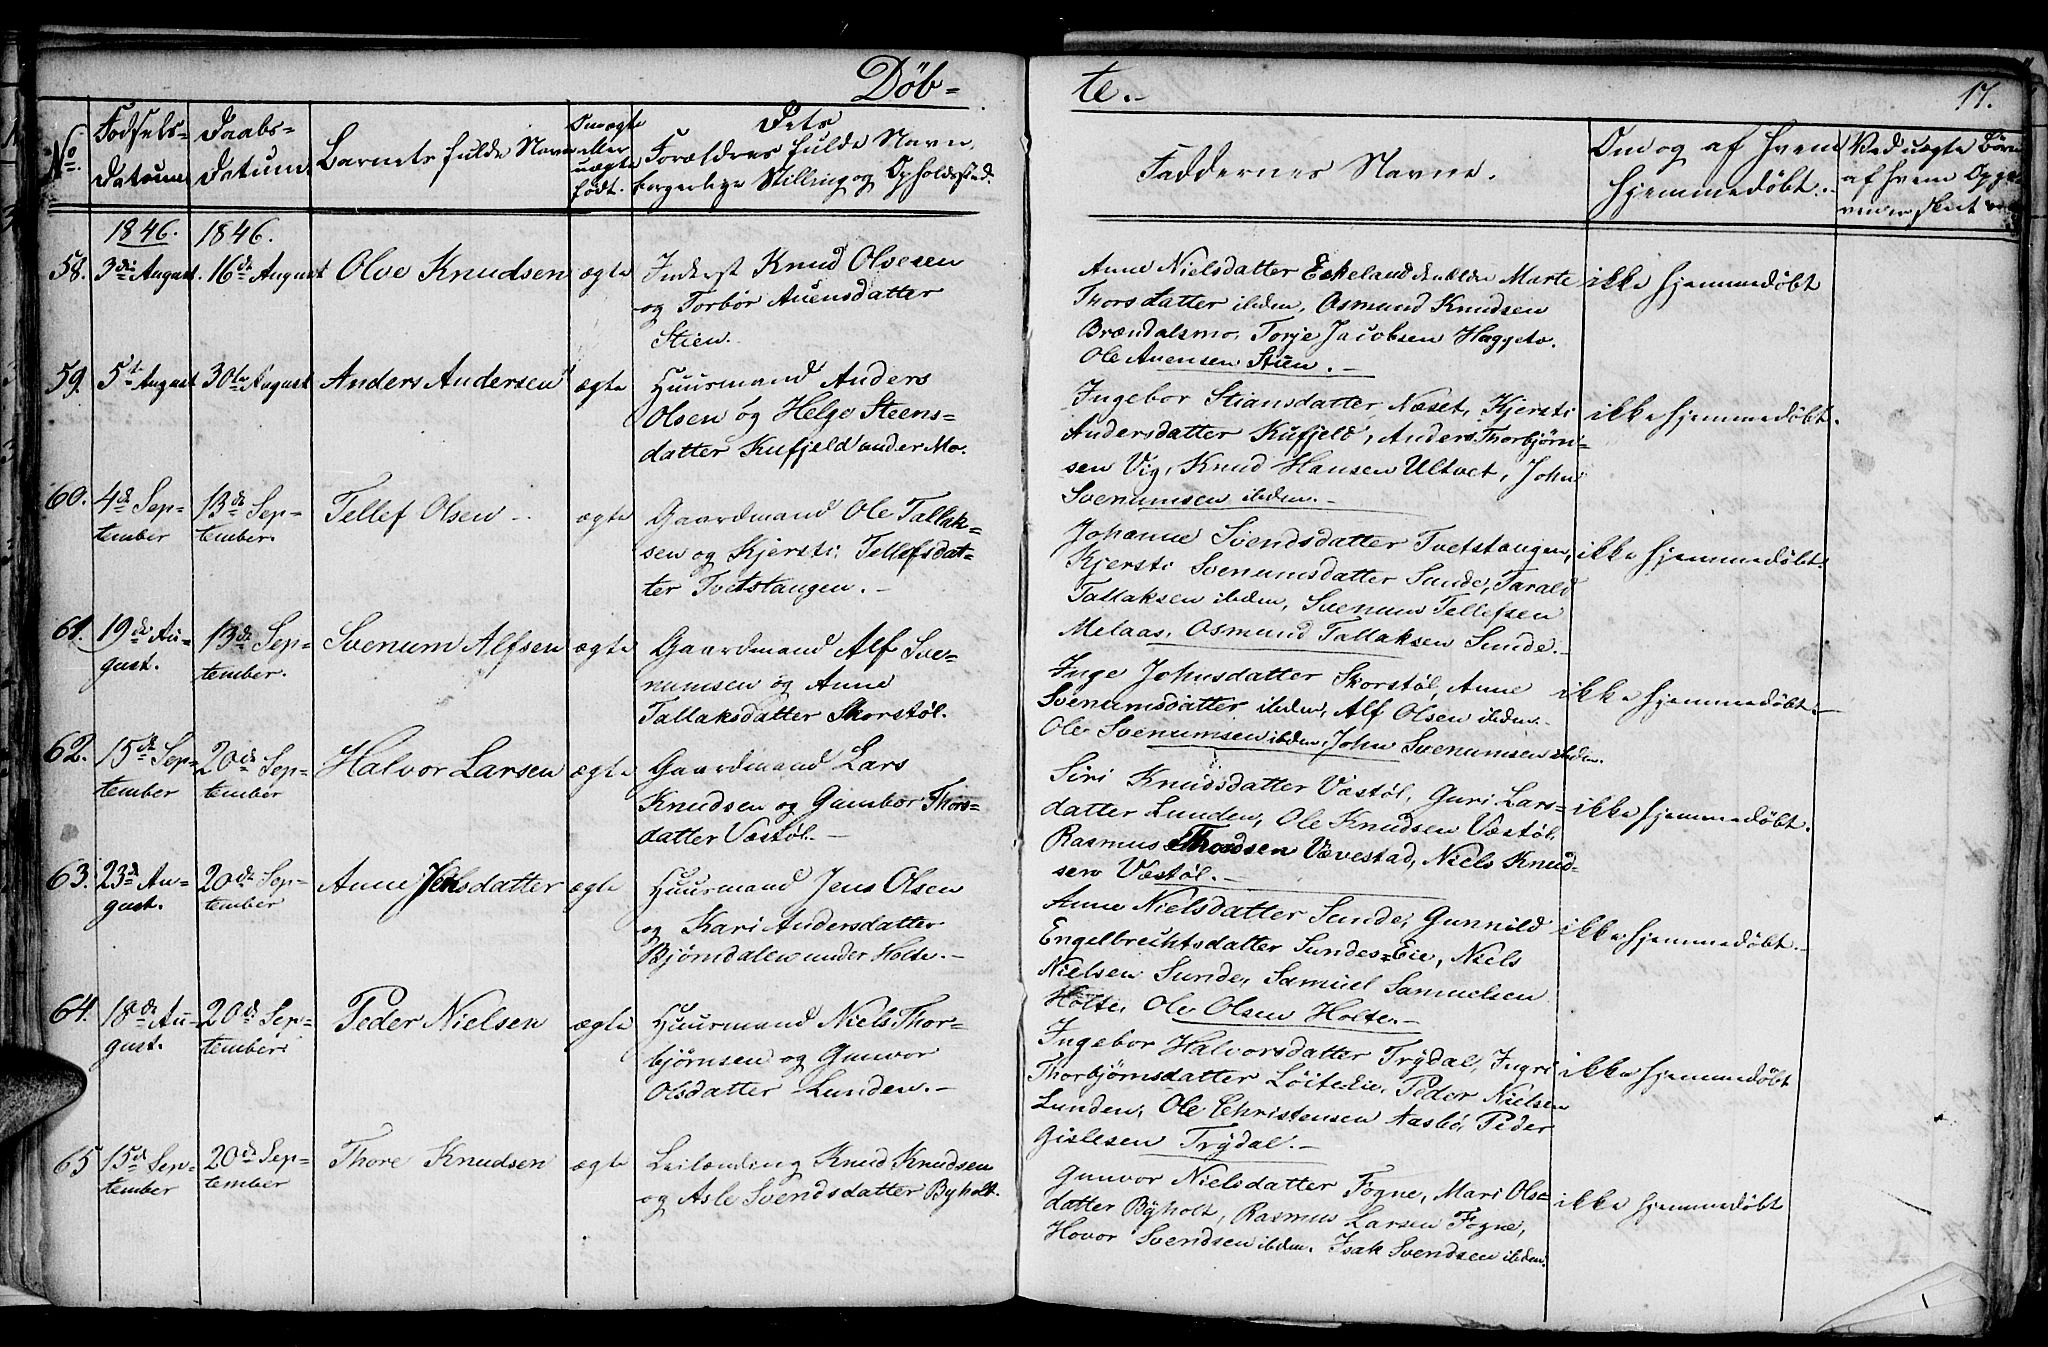 Döb-
te.-
17.
No
Fødsels-
datum
Daabs-
datum
Barnets fulde Navn
Om ægte
eller
uægte
født.
Dets
Forældres fulde Navn,
borgerlige Stilling og Opholdssted.
Faddernes Navne.
Om og af hvem
hjemmedøbt.
Ved uægte Børn
af hvem Opgi-
velsen skeet
1846. 1846.
58. 3die August. 16de August Olve Knudsen ægte Inderst Knud Olvesen
og Torbør Auensdatter
Stien.
Anne Nielsdatter Eskeland Marte
Thorsdatter ibidem, Osmund Knudsen
Brændalsmo, Torje Jacobsen Haggeto.
Ole Auensen Stien.-
ikke hjemmedøbt
59. 5te August 30te August Anders Andersen ægte Huusmand Anders
Olsen og Helge Steens=
datter Kufjeld under Mo.
Ingebor Stiansdatter Næset, Kjersti
Andersdatter Kufjeld, Anders Thorbjørn-
sen Vig, Knud Hansen Ultvet, John
Svenumsen ibidem.-
ikke hjemmedøbt.
60. 4de Sep-
tember 13de Sep-
tember. Tellef Olsen - ægte Gaardmand Ole Tallak=
sen og Kjersti Tellefsdat-
ter Tvetstangen.-
Johanne Svendsdatter Tvetstangen,
Kjersti Svenumsdatter Sunde, Tarald
Tallaksen ibidem, Svenum Tellefsen
Melaas, Osmund Tallaksen Sunde.-
ikke hjemmedøbt
61. 19de Au-
gust. 13de Sep-
tember. Svenum Alfsen ægte Gaardmand Alf Sve-
numsen og Anne
Tallaksdatter Skorstøl.
Inge Johnsdatter Skorstøl, Anne
Svenumsdatter ibidem, Alf Olsen ibidem.
Ole Svenumsen ibidem, John Svenumsen ibidem.
ikke hjemmedøbt.-
62. 15de Sep-
tember 20de Sep-
tember Halvor Larsen ægte Gaardmand Lars
Knudsen og Gumbor Thors-
datter Væstøl.-
Siri Knudsdatter Væstøl, Guri Lars=
datter Lunden, Ole Knudsen Væstøl,
Rasmus Thordsen Vævestad, Niels Knud=
sen Væstøl.-
ikke hjemmedøbt.
63. 23de Au-
gust. 20de Sep-
tember Anne Jensdatter ægte Huusmand Jens Olsen
og Kari Andersdatter
Bjørndalen under Holte.-
Anne Nielsdatter Sunde, Gunnild
Engelbrechtsdatter Sundes=Eie, Niels
Nielsen Sunde, Samuel Samuelsen
Holte, Ole Olsen Holte.-
ikke hjemmedøbt.-
64. 18de Au-
gust. 20de Sep-
tember. Peder Nielsen ægte Huusmand Niels Thor-
bjørnsen og Gunvor
Olsdatter Lunden.-
Ingebor Halvorsdatter Trydal, Ingri
Thorbjørnsdatter Løite Eie, Peder Nielsen
Lunden, Ole Christensen Aasbø, Peder
Gislesen Trydal.-
ikke hjemmedøbt
65 15de Sep-
tember 20de Sep-
tember Thore Knudsen ægte Leilænding Knud Knudsen
og Asle Svendsdatter Byholt.
Gunvor Nielsdatter Fogne, Mari Ols=
datter Byholt, Rasmus Larsen Fogne,
Hovor Svendsen ibidem. Isak Svendsen ibidem.
ikke hjemmedøbt